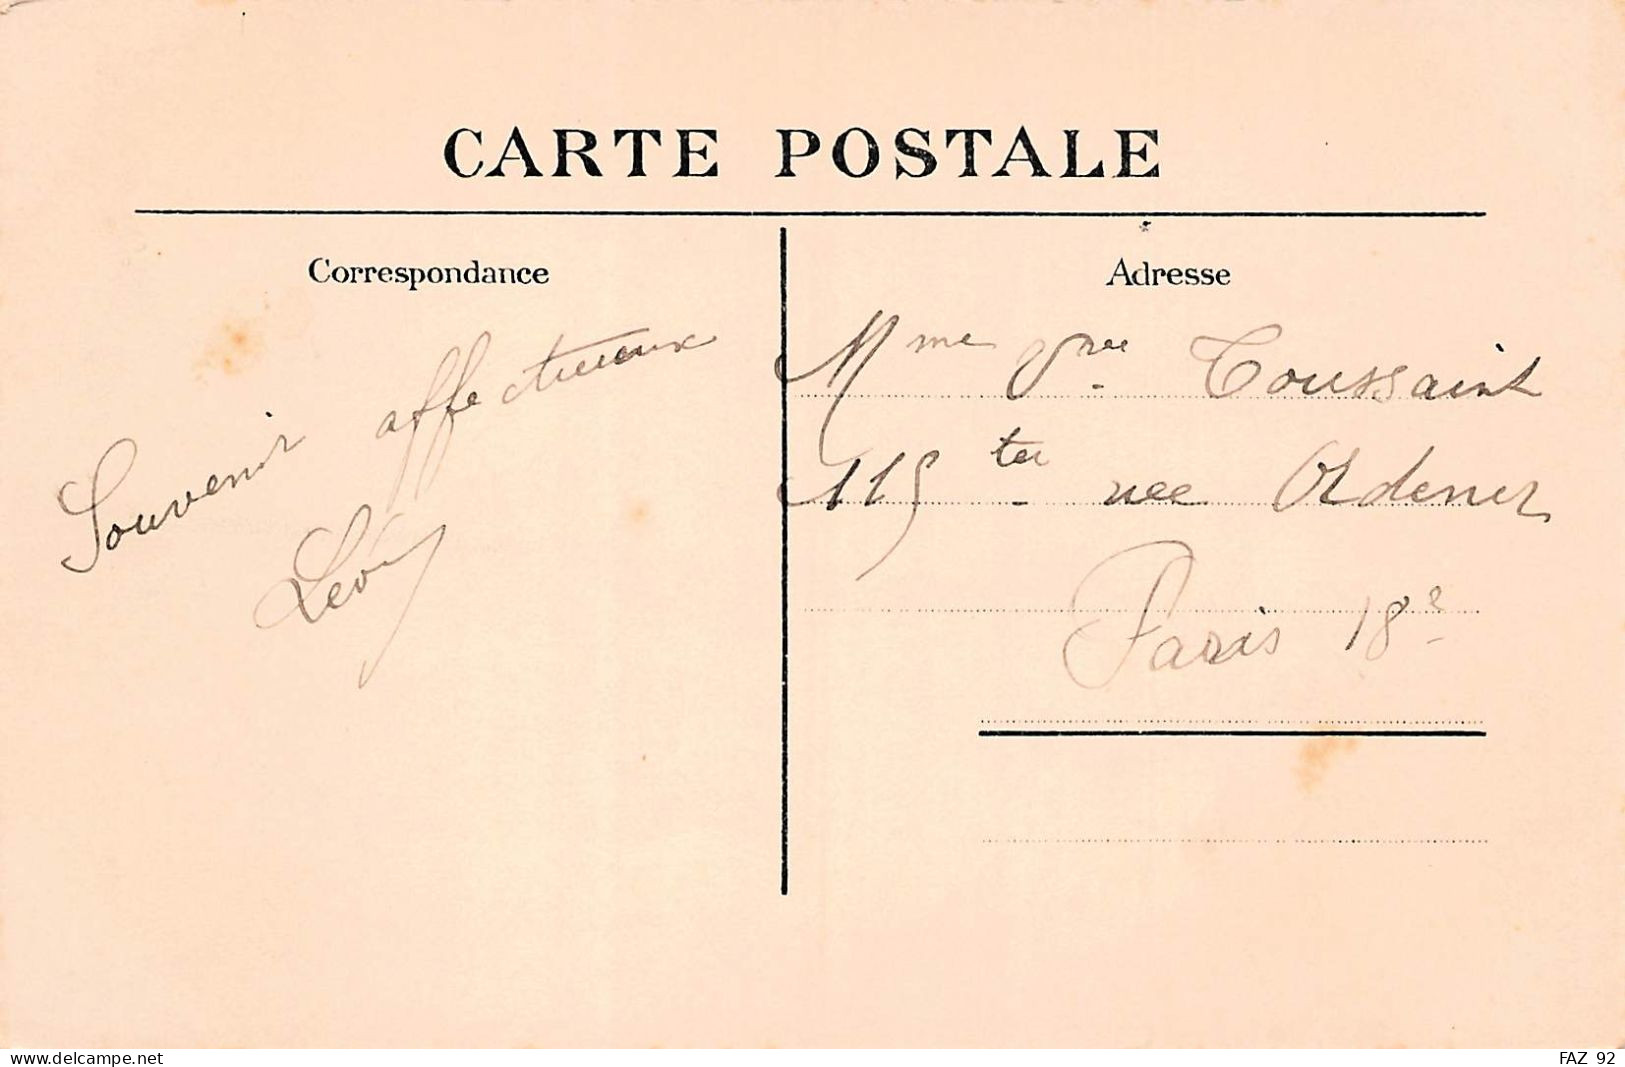 CARTE POSTALE
Correspondance
Souvenir affectueux
Adresse
Mme Vve Toussaint
115 ter rue Ordener
Paris 18e
www.delcampe.net
FAZ 92